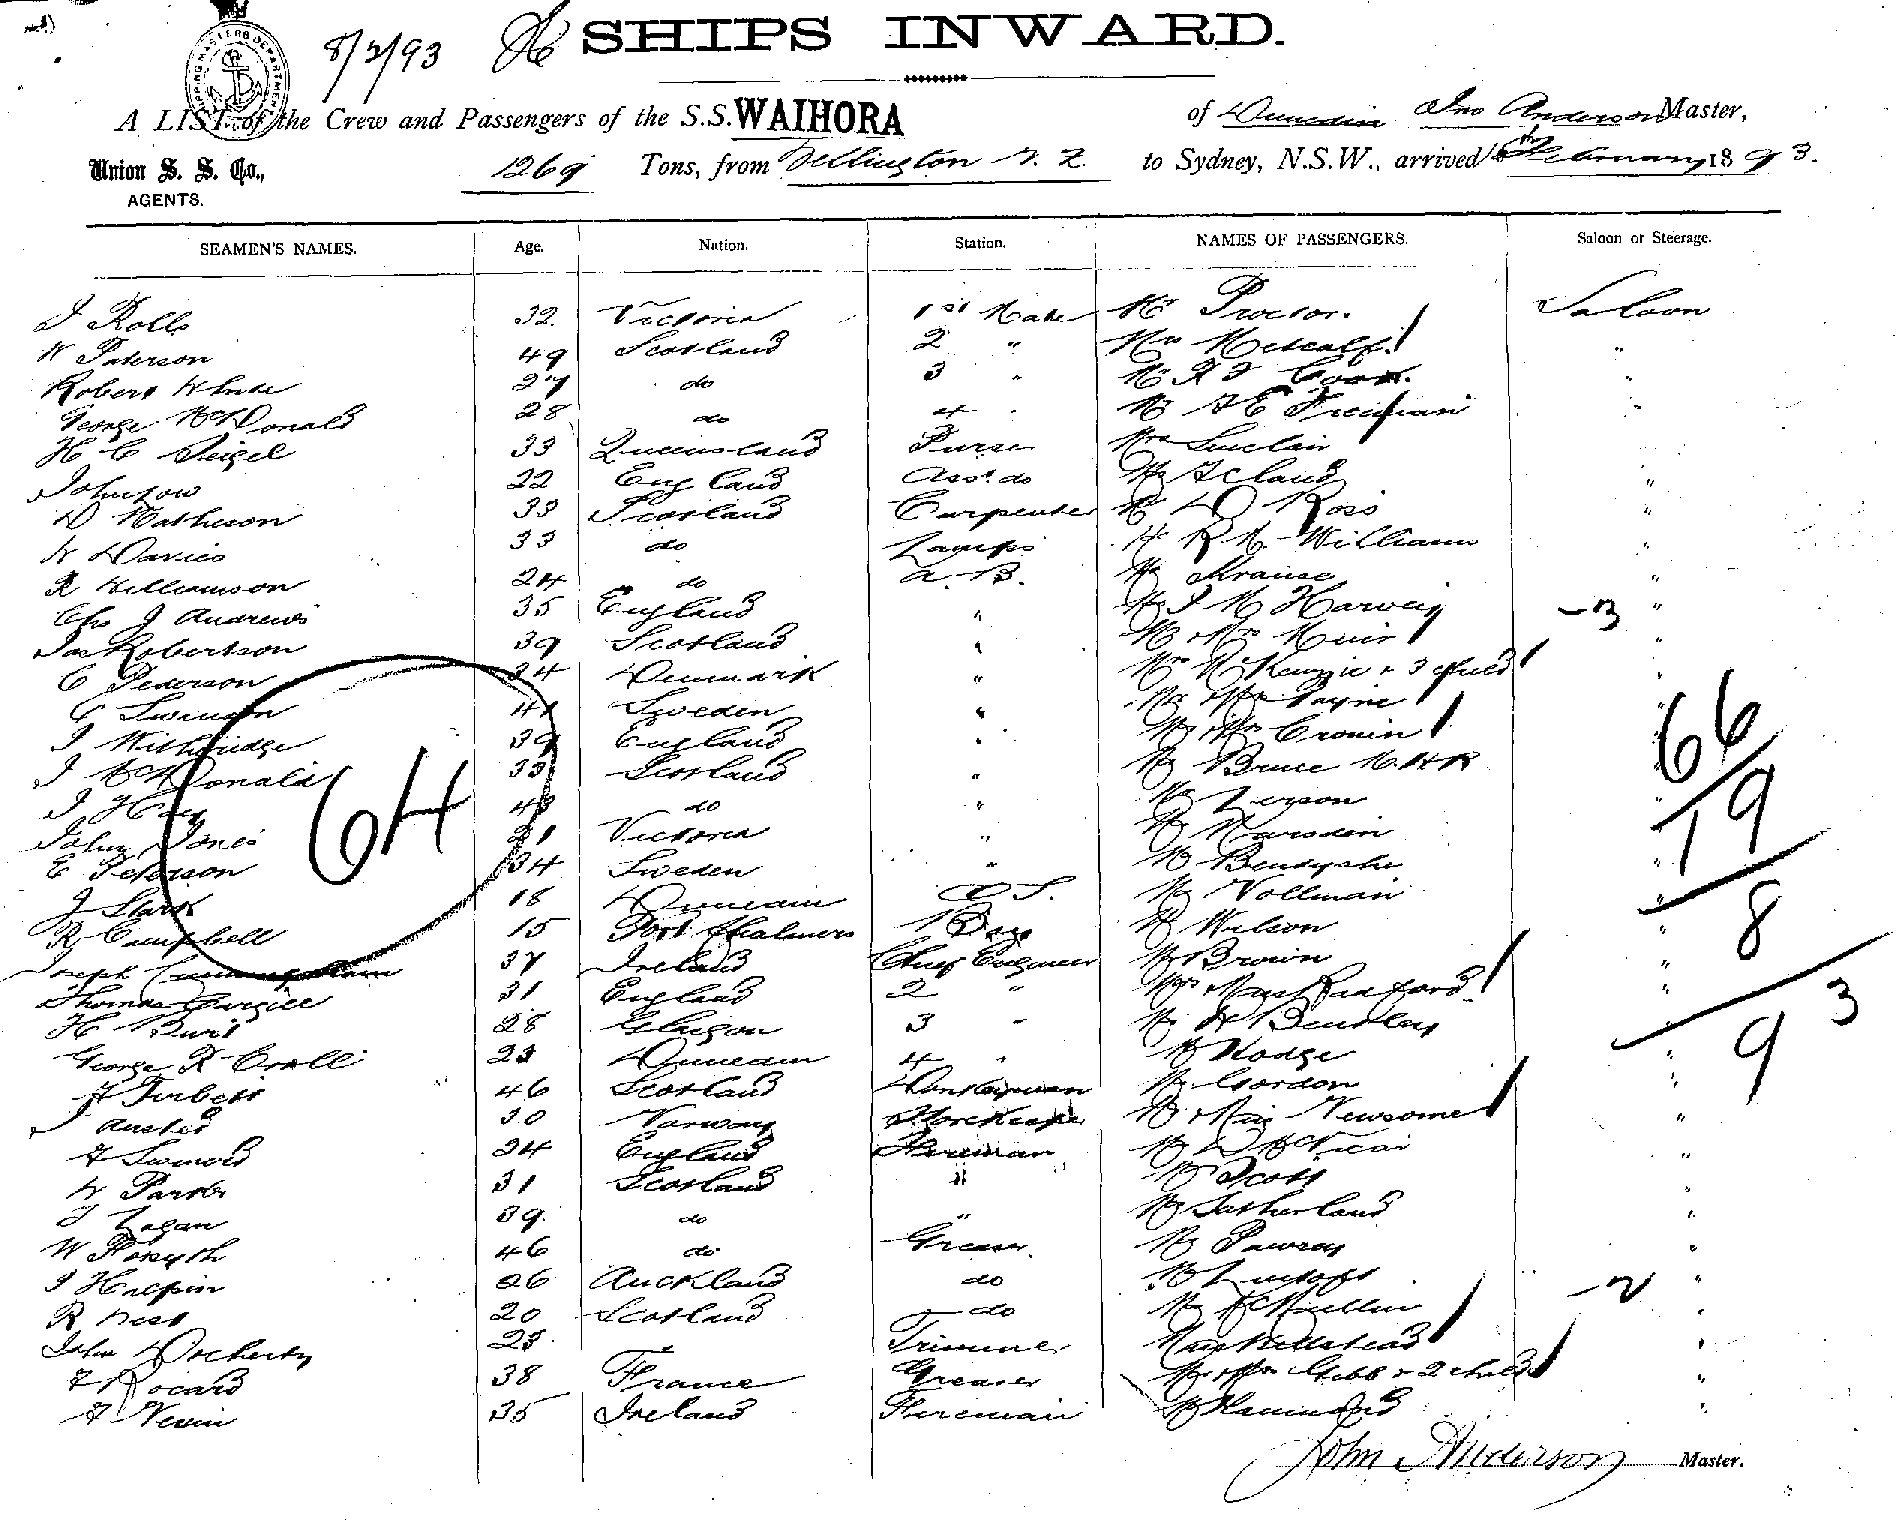 8/2/93 SHIPS INWARD.
SHIPPING MASTERS DEPARTMENT
A LIST of the Crew and Passengers of the S.S. WAIHORA of Dunedin Jno Anderson Master,
Union S. S. Co., AGENTS.
1269 Tons, from Wellington N. Z. to Sydney, N.S.W., arrived February 1893.
SEAMEN'S NAMES. Age. Nation. Station. NAMES OF PASSENGERS. Saloon or Steerage.
J Rolls 32 Victoria 1st Mate Mr Proctor. Saloon
W Paterson 49 Scotland 2 " Mrs Metcalf "
Robert White 27 do 3 " Mr Cook "
George McDonald 28 do 4 " Mr A E Freeman "
H C Seigel 33 Queensland Purser Mrs Sinclair
Johnson 22 England Asst do Mr Acland "
D Matheson 33 Scotland Carpenter Mr D Ross "
W Davies 33 do Lamps Williams "
R Williamson 24 do A.B. Mr Krause "
Chs J Andrews 35 England " Mr J M Harvey -3 "
Jas Robertson 39 Scotland " Mr Mrs Muir "
C Pederson 34 Denmark " Mrs McKenzie + 3 child "
C Swanson Sweden " Mr Mrs Payne
J Withridge 39 England " Mr Mrs Cronin 66
J McDonald 33 Scotland " Mr Bruce M.H.R
J Hay 48 do " Mr 19
John Jones 21 Victoria " Mr Marsden
64
E Peterson 34 Sweden " Mr Bendyshe "
J Stark 18 Dunedin O S. Mr Vollman "
R Campbell 15 Port Chalmers " Boy Mr Wilson 8
Joseph Cunningham 37 Ireland Chief Engineer Mr Brown "
Thomas Cargill 31 England 2 " Miss Radford "
H 28 Glasgow 3 " Mr H Bentley 93
George R Croll 23 Dunedin 4 " Mr Hodge "
F Turbett 46 Scotland Donkeyman Mr Gordon "
J 30 Norway Storekeeper Mr Miss Newsome "
34 England Fireman Mr D McVicar "
W Parks 31 Scotland " Mr Scott "
J Logan 39 do " Mr Sutherland "
W Forsyth 46 do Greaser. Mr "
J Halpin 26 Auckland do Mr -2 "
R 20 Scotland do Mr McMillin "
John Docherty 25 Trimmer Miss "
F Rocard 38 France Greaser Mr Mrs Gibb + 2 child "
F Nevin 35 Ireland Fireman Mr Hammond "
John Anderson Master.